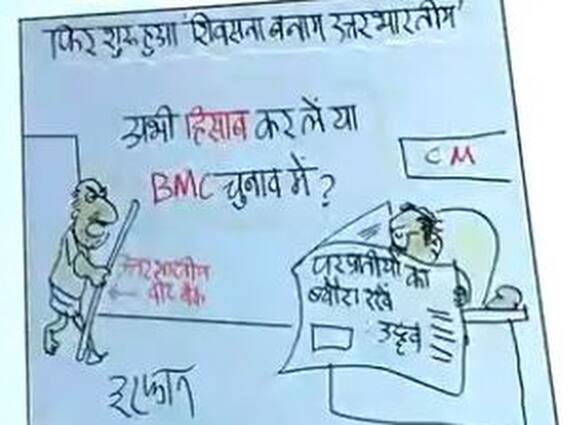 फिर शुरू हुआ 'शिवसेना बनाम उत्तर भारतीय'
अभी हिसाब कर लें या
BMC चुनाव में?
CM
उत्तर भारतीय
वोट बैंक
परप्रांतीयों का
ब्यौरा रखें
उद्धव
इरफान